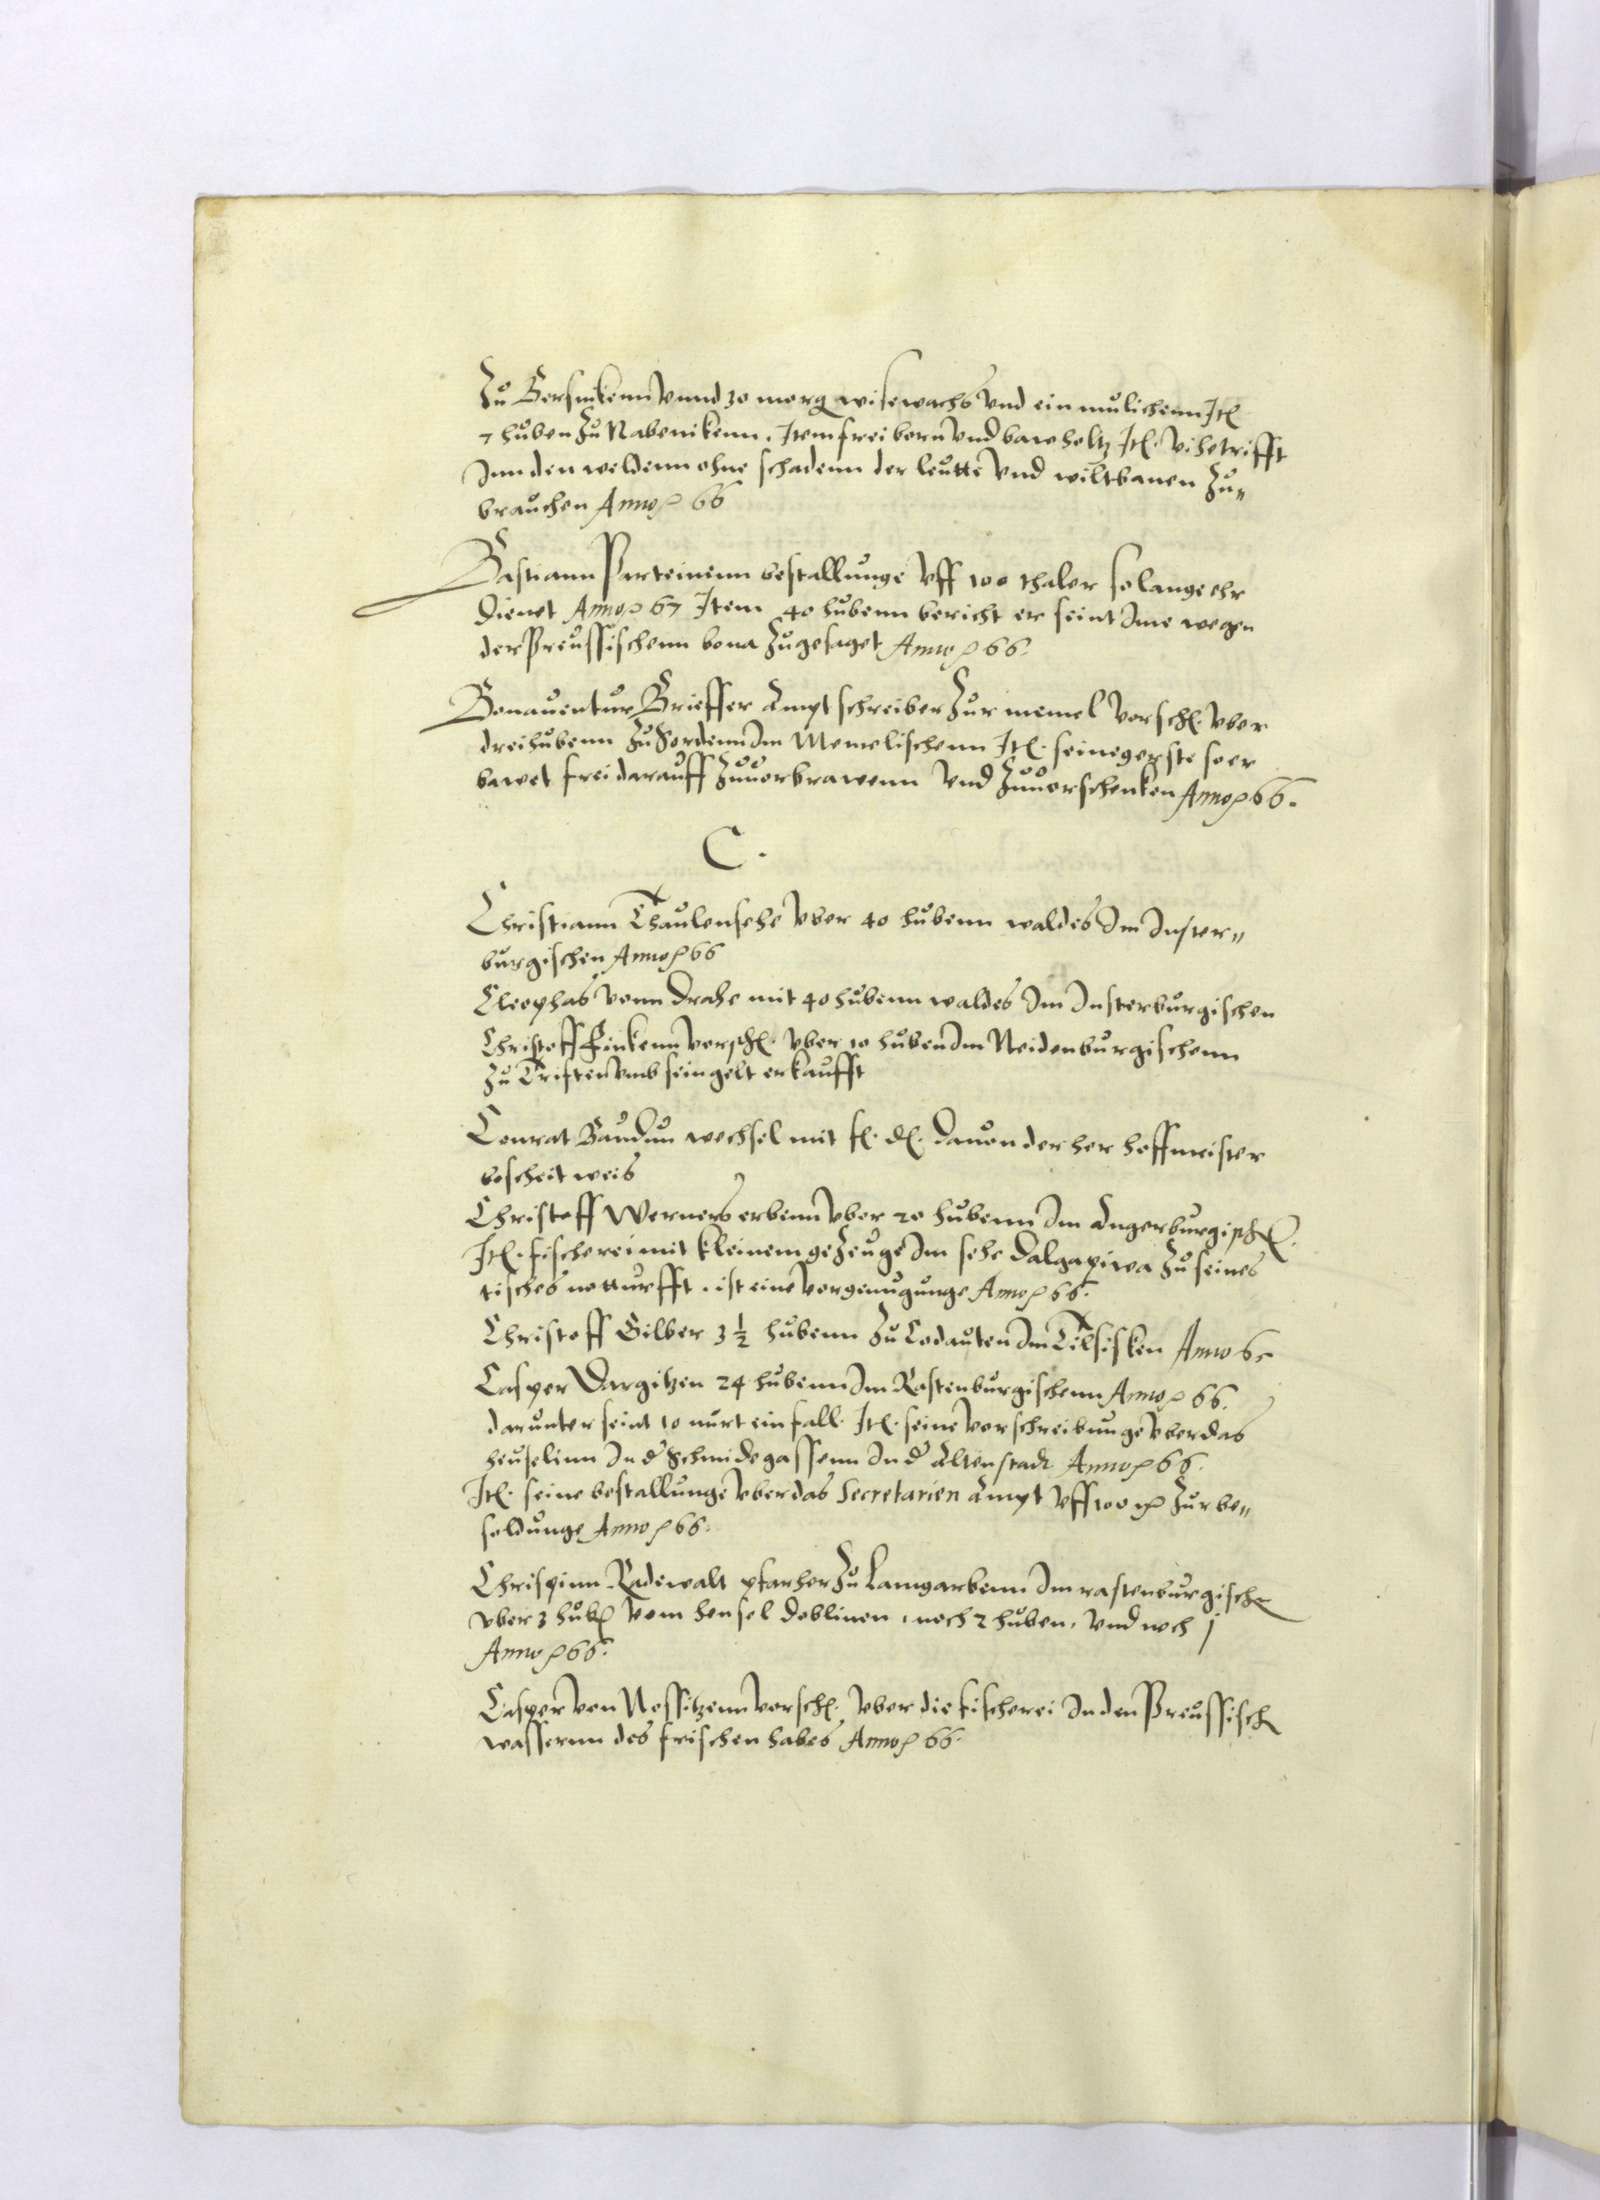 Zu Gersinkenn vnnd 30 morg wisewachs vnd ein mulichenn Itl
7 huben zu Nabenikenn. Item frei born vnd bawholtz Itl. vihetrifft
Inn den weldenn ohne schadenn der leutte vnd wiltbanen zu-
brauchen Anno 66
Bastiann Parteinenn bestallunge vff 100 thaler solange ehr
dienet Anno 67 Item 40 hubenn bericht er seint Ime wegen
der Preussischenn bona zugesaget Anno 66.
Bonauentur Brieffer Ampt schreiber zur memel vorschl. vber
drei hubenn zu Fordenn Im Memelischenn Itl. seine gerste so er
bawet frei darauff zuuorbrawenn vnd zuuorschenken Anno 66.
C.
Christiann Thaulensehe vber 40 hubenn waldes Im Inster-
burgischen Anno 66
Cleophas vonn Drahe mit 40 hubenn waldes Im Insterburgischen
Christoff Finkenn vorschl. vber 10 huben Im Neidenburgischenn
zu Triften vmb sein gelt erkaufft
Conrat Baudun wechsel mit f. d. dauon der her hoffmeister
bescheit weis
Christoff Werners erbenn vber 20 hubenn Im Angerburgischl.
Itl. fischerei mit kleinem gezeuge Im sehe Dalgapiwa zu seines
tisches notturfft. ist eine vorgenugunge Anno 66.
Christoff Gilber 3 ½ hubenn zu Codauten Im Tilsisken Anno 65
Casper Dargitzen 24 hubenn Im Rastenburgischenn Anno 66.
darunter seint 10 nurt ein fall. Itl. seine vorschreibunge vber das
heuselinn In d Schmidegassenn In d Altenstadt Anno 66.
Itl. seine bestallunge vber das Secretarien Ampt vff 100 zur be-
soldunge Anno 66.
Chrispinn Radewalt pfarher zu Lamgarbenn Im rastenburgische
vber 3 hub vom hensel doblinen, noch 2 huben, vnd noch j
Anno 66.
Casper von Nostitzenn vorschl. vber die fischerei In den Preussisch
wassernn des frischen habes Anno 66.